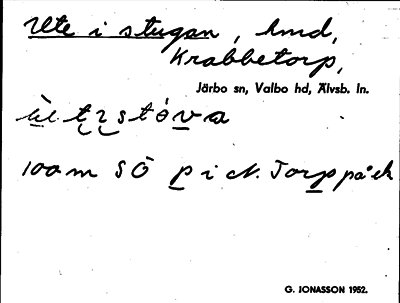 Ute i stugan, hmd,
Krabbetorp,
Järbo sn, Valbo hd, Älvsb. ln.
100 m SÖ p i N. Torp på ek
G. JONASSON 1952.